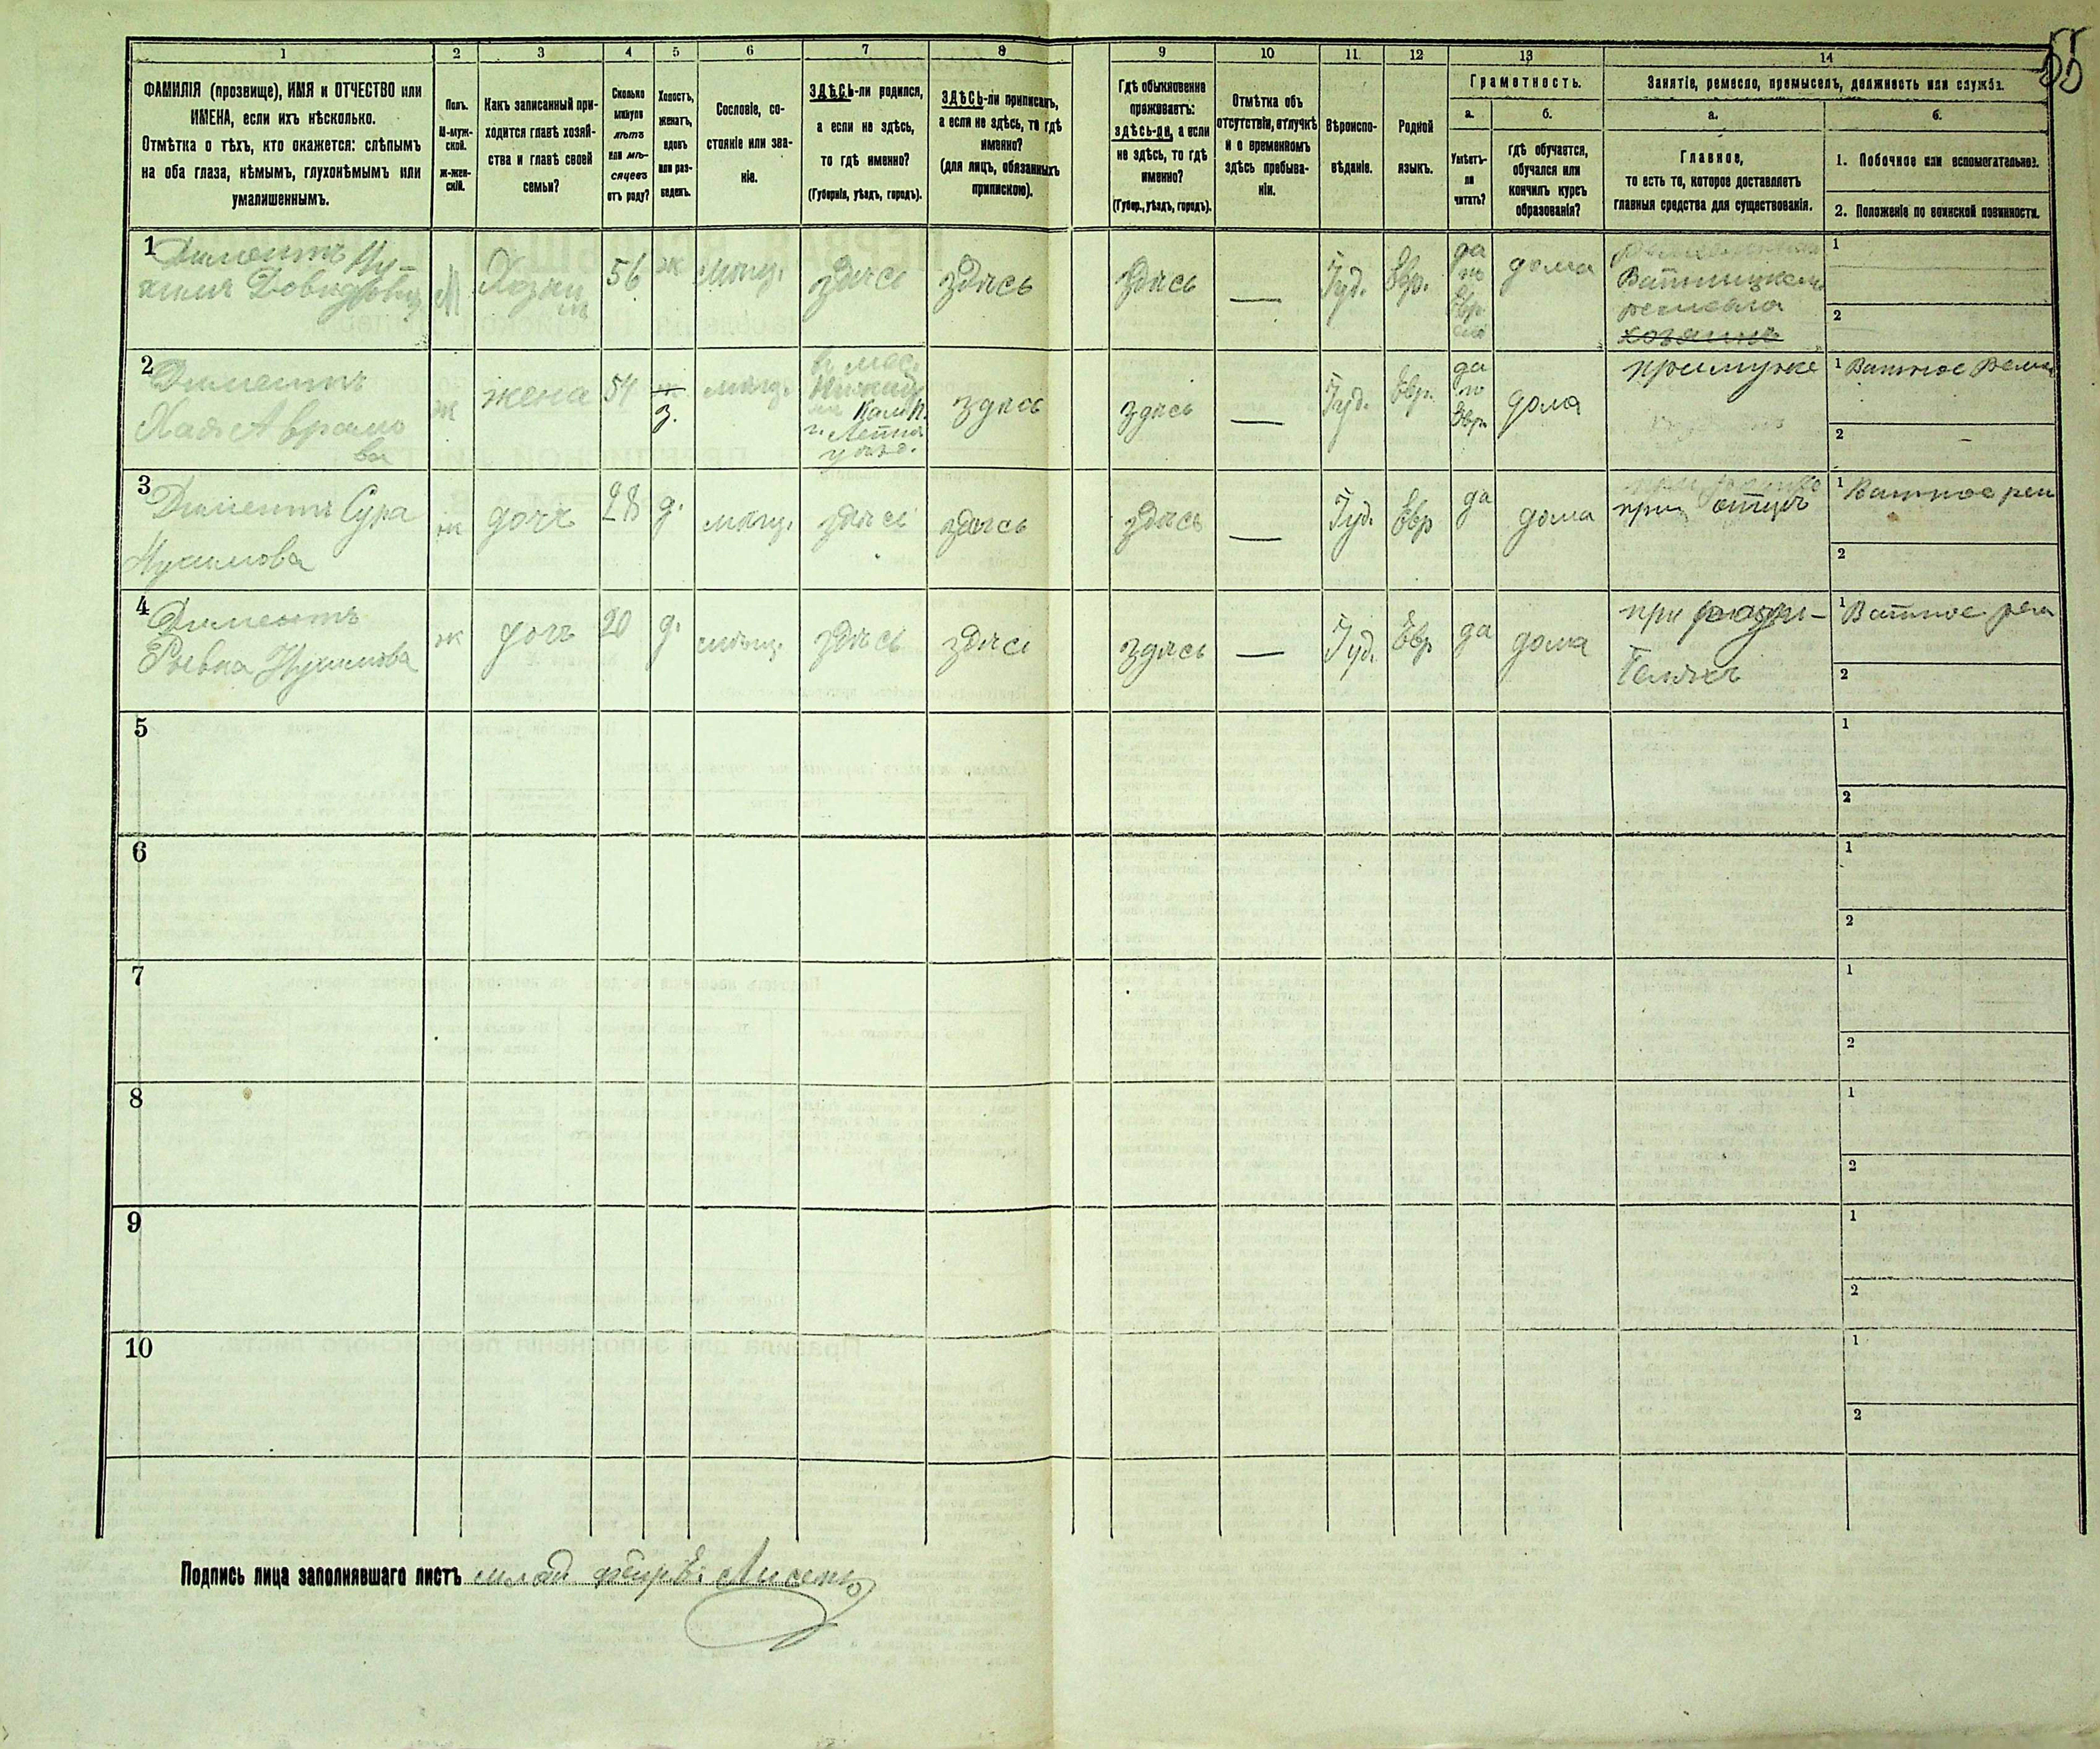 55
1 2 3 4 5 6 7 8 9 10 11. 12 13 14
ФАМИЛІЯ (прозвище), ИМЯ и ОТЧЕСТВО или
ИМЕНА, если ихъ нѣсколько.
Отмѣтка о тѣхъ, кто окажется: слѣпымъ
на оба глаза, нѣмымъ, глухонѣмымъ или
умалишеннымъ.
Полъ.
М-муж-
ской.
ж-жен-
скій.
Какъ записанный при-
ходится главѣ хозяй-
ства и главѣ своей
семьи?
Сколько
минуло
лѣтъ
или мѣ-
сяцевъ
отъ роду?
Холостъ,
женатъ,
вдовъ
или раз-
веденъ.
Сословіе, со-
стояніе или зва-
ніе.
ЗДѢСЬ-ли родился,
а если не здѣсь,
то гдѣ именно?
(Губернія, уѣздъ, городъ).
ЗДѢСЬ-ли приписанъ,
а если не здѣсь, то гдѣ
именно?
(для лицъ, обязанныхъ
припискою).
Гдѣ обыкновенно
проживаетъ:
здѣсь-ли, а если
не здѣсь, то гдѣ
именно?
(Губер., уѣздъ, городъ).
Отмѣтка объ
отсутствіи, отлучкѣ
и о временномъ
здѣсь пребыва-
ніи.
Вѣроиспо-
вѣданіе.
Родной
языкъ.
Грамотность.
а. б.
Умѣетъ-
ли
читать?
гдѣ обучается,
обучался или
кончилъ курсъ
образованія?
Занятіе, ремесло, промыселъ, должность или служба.
а. б.
Главное,
то есть то, которое доставляетъ
главныя средства для существованія.
1. Побочное или вспомогательное.
2. Положеніе по воинской повинности.
1 Диментъ Ну-
химъ Довидовиц
М
Хозяи
нъ
56
ж
мѣщ.
здѣсь
здѣсь
здѣсь
—
Іуд.
Евр.
да
по
Евр
дома
ремесла
хозяинъ
1
2
2 Диментъ
Хая Аврамо
ва
ж
жена
54
з.
мѣщ.
в мес.
уѣзд.
здѣсь
здѣсь
—
Іуд.
Евр.
да
по
Евр.
дома
примуже
1 Ватное
2
3 Диментъ Сура
Нухимова
ж
дочь
28
д.
мѣщ.
здѣсь
здѣсь
здѣсь
—
Іуд.
Евр
да
дома
при отцѣ
1 Ватное рем
2
4 Диментъ
Ривка Нухимова
ж
дочь
20
д.
мѣщ.
здѣсь
здѣсь
здѣсь
—
Іуд.
Евр
да
дома
при роди-
теляхъ
1 Ватное рем
2
5
1
2
6
1
2
7
1
2
8
1
2
9
1
2
10
1
2
Подпись лица заполнявшаго листъ